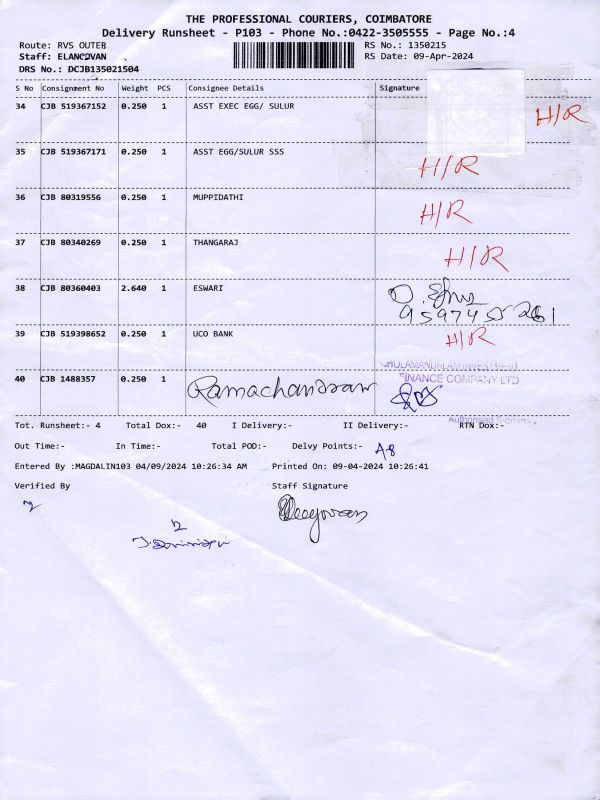 THE PROFESSIONAL COURIERS, COIMBATORE
Delivery Runsheet - P103 - Phone No.:0422-3505555 - Page No.:4
Route: RVS OUTER RS No.: 1350215
Staff: ELANGOVAN RS Date: 09-Apr-2024
DRS No.: DCJB135021504
S No Consignment No Weight PCS Consignee Details Signature
34 CJB 519367152 0.250 1 ASST EXEC EGG/ SULUR H/R
35 CJB 519367171 0.250 1 ASST EGG/SULUR SSS H/R
36 CJB 80319556 0.250 1 MUPPIDATHI H/R
37 CJB 80340269 0.250 1 THANGARAJ H/R
38 CJB 80360403 2.640 1 ESWARI
39 CJB 519398652 0.250 1 UCO BANK H/R
CHOLAMANDALAM INVESTMENT
FINANCE COMPANY LTD
40 CJB 1488357 0.250 1 Ramachandran
Authorised Signatory
Tot. Runsheet:- 4 Total Dox:- 40 I Delivery:- II Delivery:- RTN Dox:-
Out Time:- In Time:- Total POD:- Delvy Points:- A8
Entered By :MAGDALIN103 04/09/2024 10:26:34 AM Printed On: 09-04-2024 10:26:41
Verified By Staff Signature